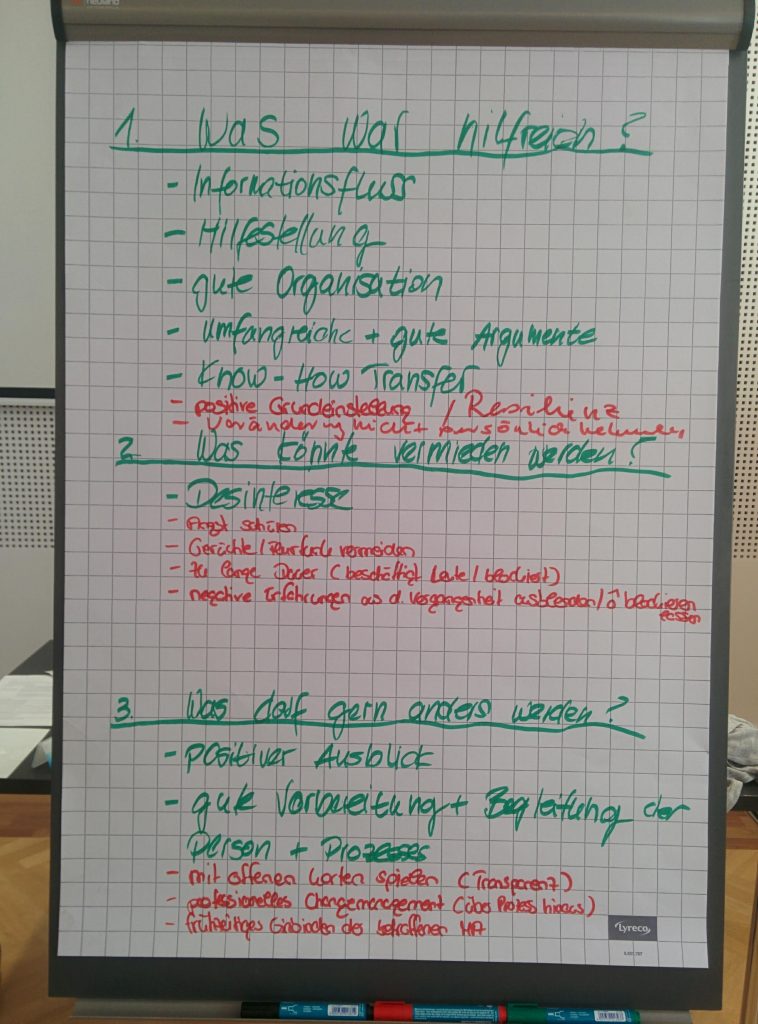 neuland
1. Was war hilfreich?
- Informationsfluss
- Hilfestellung
- gute Organisation
- umfangreiche + gute Argumente
- Know-How Transfer
- positive Grundeinstellung / Resilienz
- Veränderung nicht persönlich nehmen,
2. Was könnte vermieden werden?
- Desinteresse
- Angst schüren
- Gerüchte / vermeiden
- zu lange Dauer (beschäftigt Leute / belastet)
- negative Erfahrungen aus d. Vergangenheit ausblenden /
lassen
3. Was darf gern anders werden?
- positiver Ausblick
- gute Vorbereitung + Begleitung der
Person + Prozesses
- mit offenen Karten spielen (Transparenz)
- professionelles Changemanagement (über Prozess hinaus)
- frühzeitiges Einbinden der betroffenen MA
Lyreco